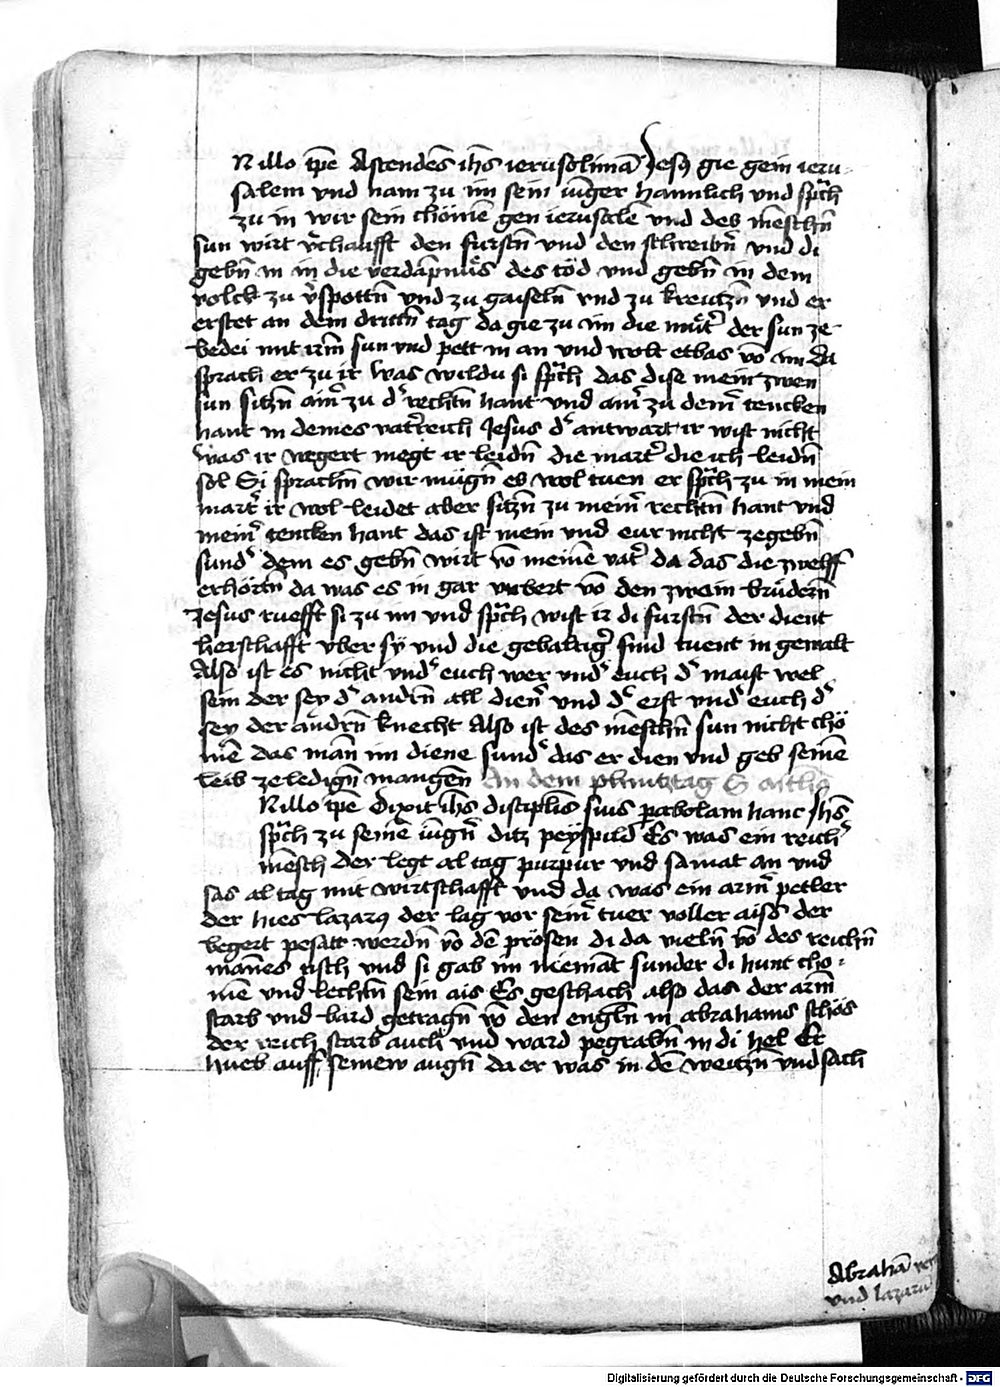 N illo tp̄e Ascendēs ih̄s ierusolimā Jesꝯ gie gein ieru-
salem vnd nam zu im sein iūger haimlich vnd sp̄ch
zu in wir sein chömē gen ierusalē vnd des mēschn̄
sun wirt v̓chaufft den furstn̄ vnd den schreibn̄ vnd di
gebn̄ in in die verdāpnüs des töd vnd gebn̄ in dem
volck zu v̓spottn̄ vnd zu gaiseln̄ vnd zu kreutzn̄ vnd er
erstet an dem drittn̄ tag da gie zu im die müt̓ der sun ze-
bedei mit irm̄ sun vnd pett in an vnd wolt etbas vō im da
sprach er zu ir was wildu si sp̄ch das dise mein zwen
sun sitzn̄ ain̓ zu d̓ rechtn̄ hant vnd ain̓ zu dein̓ tencken
hant in deines vat̓reich Jesus d̓ antwart ir wist nicht
was ir wegert megt ir leidn̄ die mart̓ die ich leidn̄
sol Si sprachn̄ wir mügn̄ es wol tuen er sp̄ch zu in mein
mart̓ ir wol leidet aber sitzn̄ zu mein̓ rechtn̄ hant vnd
mein̓ tencken hant das ist mein vnd eur nicht zegebn̄
sund̓ dem es gebn̄ wirt vō meinē vat̓ da das die zwelff
erhörtn̄ da was es in gar vnbert vō den zwein brüdern̄
Jesus ruefft si zu im vnd sp̄ch wist ir di furstn̄ der dient
herschafft vber sÿ vnd die gebaltig̓ sind tuent in gewalt
Also ist es nicht vnd̓ euch wer vnd̓ euch d̓ maist wel
sein der sey d̓ andrn̄ all dien̓ vnd d̓ erst vnd̓ euch d̓
sey der andrn̄ knecht Also ist des mēschn̄ sun nicht chö
mē das mān im diene sund̓ das er dien vnd geb seinē
leib ze ledign̄ mangen An dem phintztag
N illo tp̄e Dixit ih̄s disciplis̄ suis parabolam hanc Jh̄s
sp̄ch zu seinē iūgn̄ ditz peÿspild Es was ein reich̓
mēsch der legt al tag purpur vnd samat an vnd
sas al tag mit wirtschafft vnd da was ein arm̓ petler
der hies lazarꝯ der lag vor sein̓ tuer voller aisd̓ der
begert pesatt werdn̄ vō dē prösen di da vieln̄ vō des reichn̄
mānes tisch vnd si gab im niemāt sunder di hunt cho-
mē vnd lechtn̄ sein ais Es geschach also das der arm̄
starb vnd bard getragn̄ vō den engln̄ in abrahams schös
der reich starb auch vnd ward pegrabn̄ in di hel Er
hueb auff seinew augn̄ da er was in dē weitzn̄ vnd sach
Abrahā
vnd lazarū
Digitalisierung gefördert durch die Deutsche Forschungsgemeinschaft - DFG